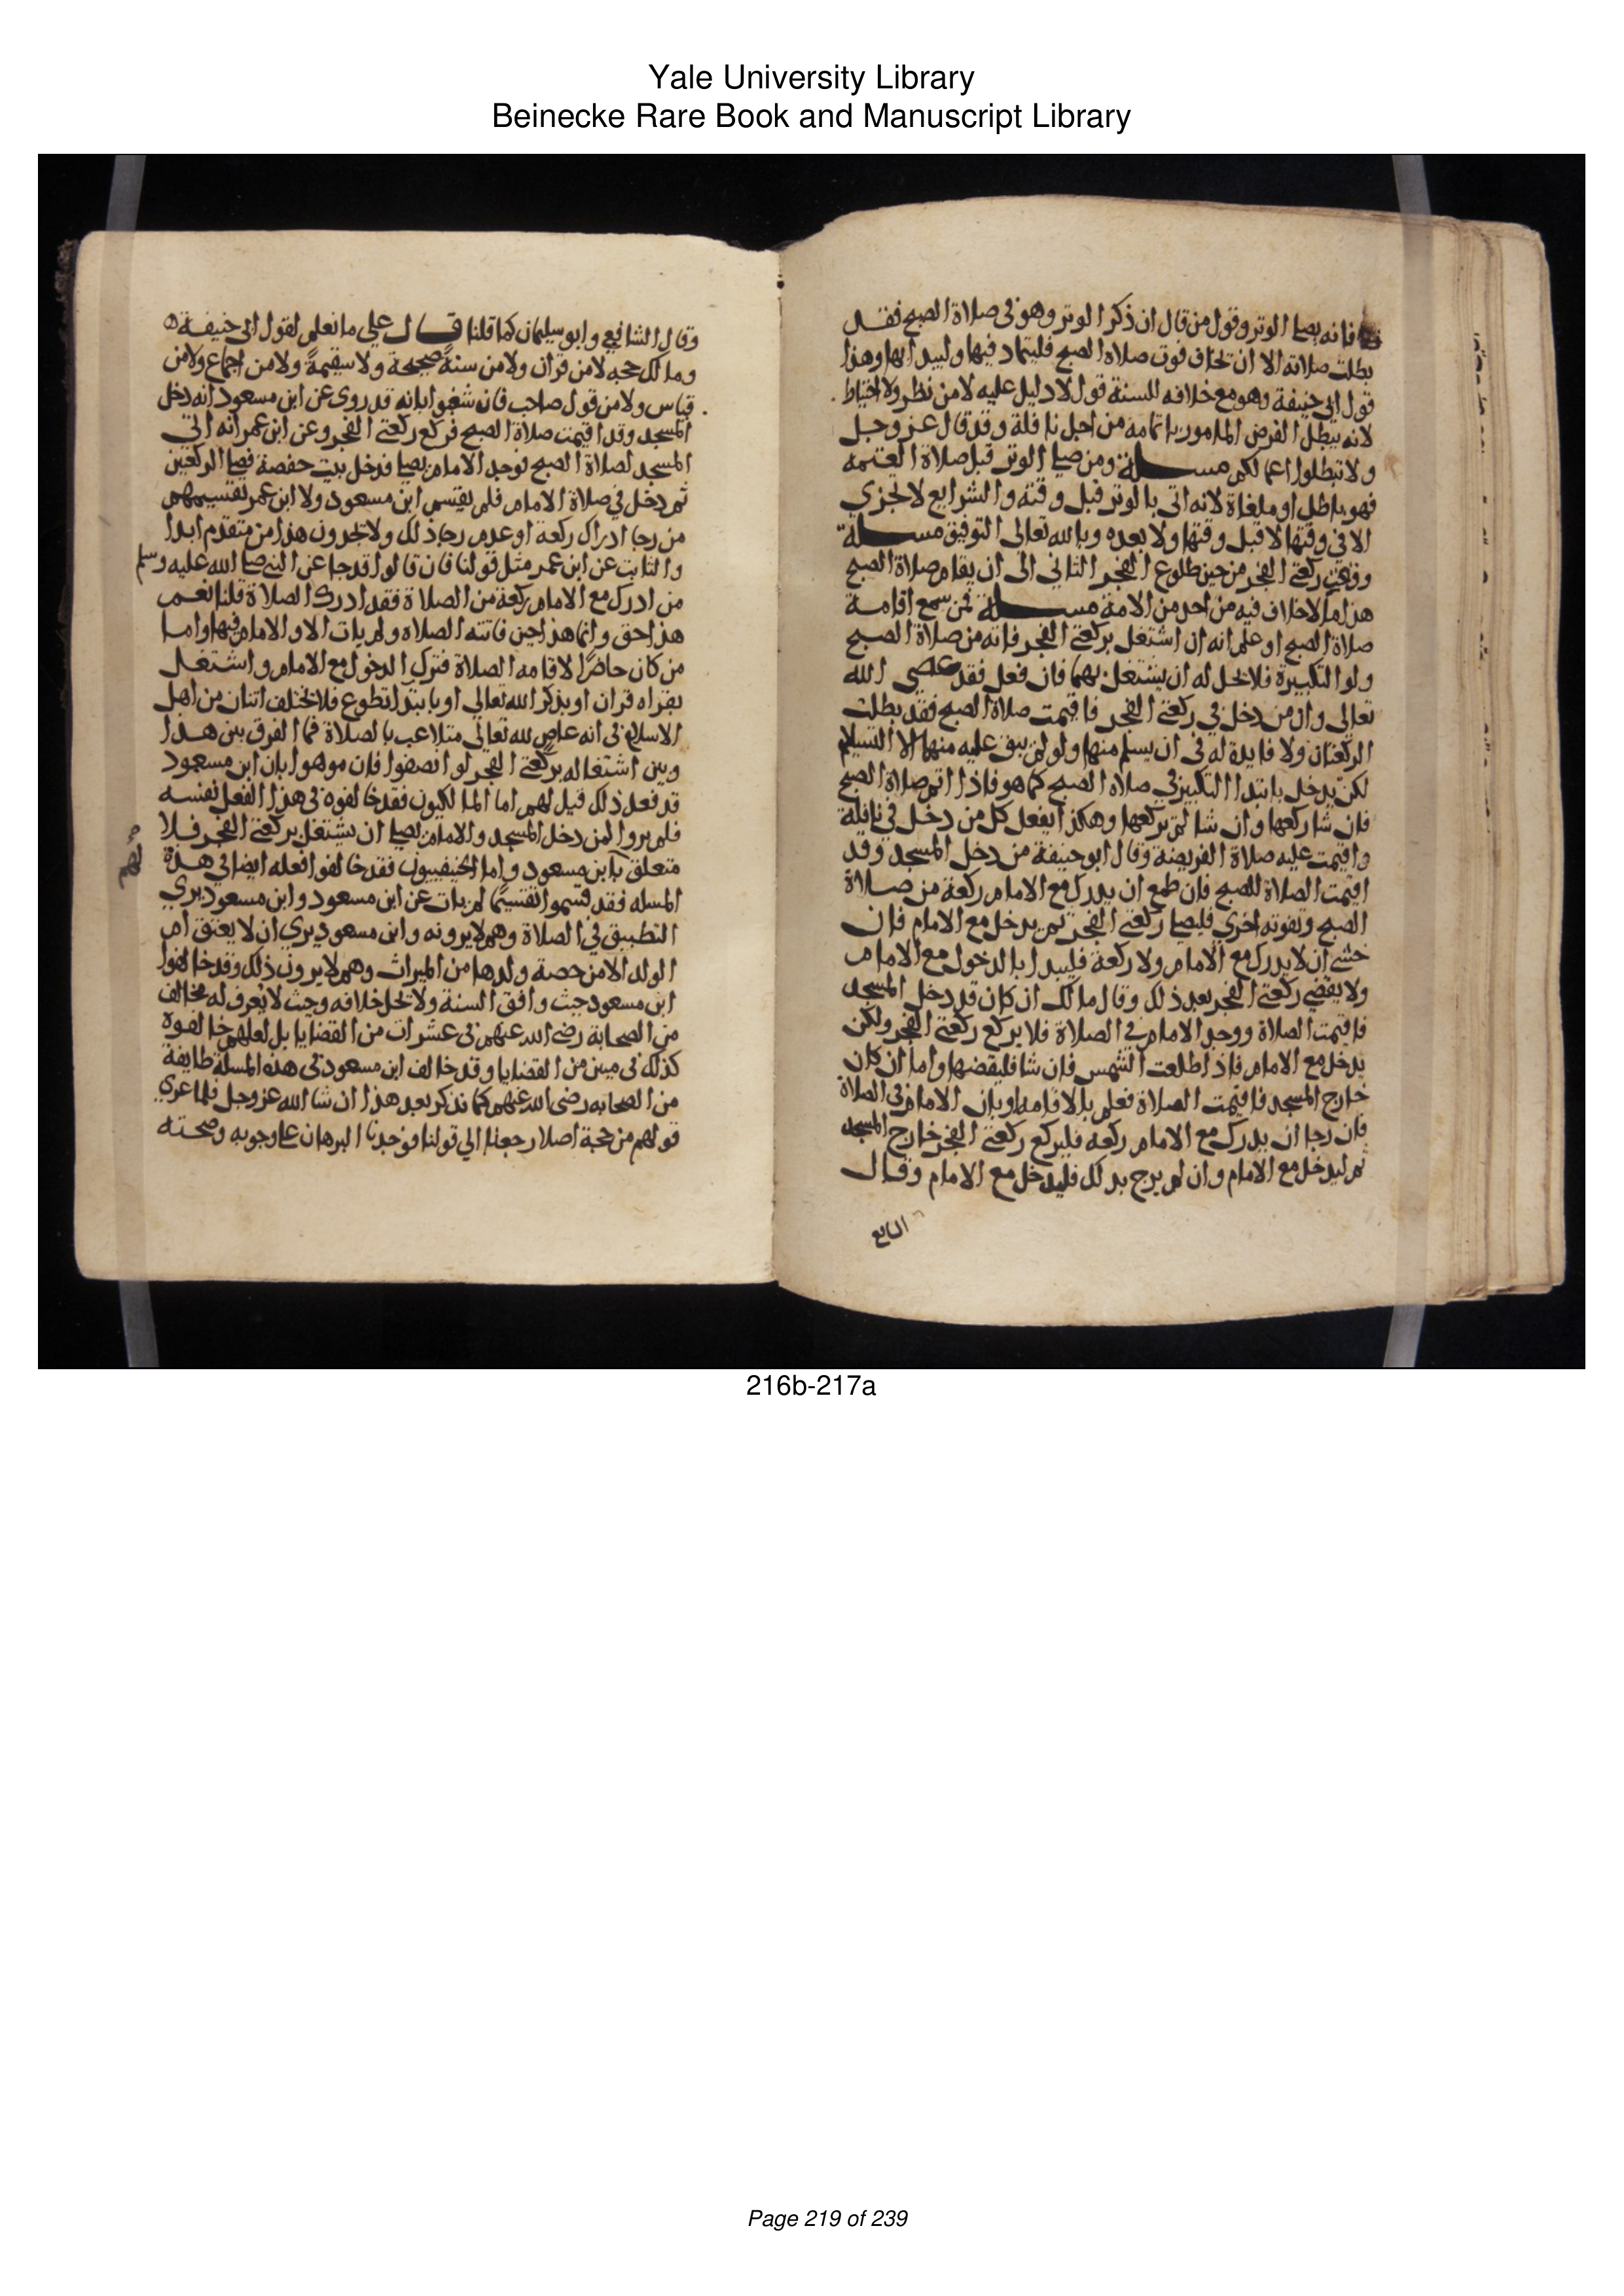 Yale University Library
Beinecke Rare Book and Manuscript Library
فانه يصلي الوتر وقول من قال ان ذكر الوتر وهو في صلاة الصبح فقد
بطلت صلاته الا ان يخاف فوت صلاه الصبح فليتماد فيها وليبدا بها وهذا
قول ابي حنيفة وهو مع خلافه للسنة قول لا دليل عليه لا من نظر ولا احتياط
لانه يبطل الفرض المامور باتمامه من اجل نافلة وقد قال عز وجل
ولا تبطلوا اعمالكم مسلة ومن صلي الوتر قبل صلاة العتمه
فهو باطل او ملغاة لانه اتي بالوتر قبل وقته والشرايع لا تجزي
الا في وقتها لا قبل وقتها ولا بعده وبالله تعالى التوفيق مسلة
ووقت ركعتي الفجر من حين طلوع الفجر الثاني الى ان يقام صلاة الصبح
هذا ما لا خلاف فيه من احد من الامة مسلة فمن سمع اقامة
صلاة الصبح او علم انه ان اشتغل بركعتي الفجر فاته من صلاة الصبح
ولو التكبيرة فلا يحل له ان يشتغل بهما فان فعل فقد عصى الله
تعالى وان من دخل في ركعتي الفجر فاقيمت صلاة الصبح فقد بطلت
الركعتان ولا فايدة له في ان يسلم منها ولو لم يبق عليه منهما الا التسليم
لكن يدخل بابتدا التكبير في صلاه الصبح كما هو فاذا اتم صلاة الصبح
فان شا ركعها وان شا لم يركعها وهكذا يفعل كل من دخل في نافلة
واقيمت عليه صلاة الفريضة وقال ابو حنيفة من دخل المسجد وقد
اقيمت الصلاة للصبح فان طمع ان يدرك مع الامام ركعة من صلاة
الصبح وتفوته اخري فليصل ركعتي الفجر ثم يدخل مع الامام فان
خشي ان لا يدرك مع الامام ولا ركعة فليبدا بالدخول مع الامام
ولا يقضي ركعتي الفجر بعد ذلك وقال مالك ان كان قد دخل المسجد
فاقيمت الصلاة ووجد الامام في الصلاة فلا يركع ركعتي الفجر ولكن
يدخل مع الامام فاذا طلعت الشمس فان شا فليقضها واما ان كان
خارج المسجد فاقيمت الصلاة فعلم بالاقامه او بان الامام في الصلاة
فان رجا ان يدرك مع الامام ركعه فليركع ركعتي الفجر خارج المسجد
ثم ليدخل مع الامام وان لم يرج بدلك فليدخل مع الامام وقال
وقال الشافعي وابو سليمان كما قلنا قال علي ما نعلم لقول ابي حنيفة
ومالك حجه لا من قران ولا من سنة صحيحة ولا سقيمة ولا من اجماع ولا من
قياس ولا من قول صاحب فان شغبوا بانه قد روي عن ابن مسعود انه دخل
المسجد وقد اقيمت صلاة الصبح فركع ركعتي الفجر وعن ابن عمر انه اتي
المسجد لصلاة الصبح فوجد الامام يصلي فدخل بيت حفصة فصلي الركعتين
ثم دخل في صلاة الامام فلم يقسم ابن مسعود ولا ابن عمر تقسيمهم
من رجا ادراك ركعة او عدم رجا ذلك ولا تجدون هذا من متقدم ابدا
والثابت عن ابن عمر مثل قولنا فان قالوا قد جا عن النبي صلي الله عليه وسلم
من ادرك مع الامام ركعة من الصلاة فقد ادرك الصلاة قلنا نعم
هذا حق وانما هذا حين فاتته الصلاه ولم يات الا والامام فيها واما
من كان حاضرا لاقامه الصلاة فترك الدخول مع الامام واشتغل
بقراه قران او بذكر الله تعالي او بابتدا تطوع فلا يختلف اثنان من اهل
الاسلام في انه عاص لله تعالى متلاعب بالصلاة فما الفرق بين هذا
وبين اشتغاله بركعتي الفجر لو انصفوا فان موهوا بان ابن مسعود
قد فعل ذلك قيل لهم اما المالكيون فقد خالفوه في هذا الفعل نفسه
فلم يروا لمن دخل المسجد والامام يصلي ان يشتغل بركعتي الفجر فلا
متعلق بابن مسعود واما الحنيفيون فقد خالفوا فعله ايضا في هذه
المسله فقد قسموا تقسيما لم يات عن ابن مسعود وابن مسعود يري
التطبيق في الصلاة وهم لا يرونه وابن مسعود يري ان لا يعتق ام
الولد الا من حصة ولدها من الميراث وهم لا يرون ذلك وقد خالفوا
ابن مسعود حيث وافق السنة ولا يحل خلافه وحيث لا يعرف له مخالف
من الصحابة رضي الله عنهم في عشرات من القضايا بل لعلهم خالفوه
كذلك في ميين من القضايا وقد خالف ابن مسعود في هذه المسلة طايفة
من الصحابه رضى الله عنهم كما نذكر بعد هذا ان شا الله عز وجل فلما عري
قولهم من حجة اصلا رجعنا الي قولنا فوجدنا البرهان علي وجوبه وصحته
216b-217a
Page 219 of 239